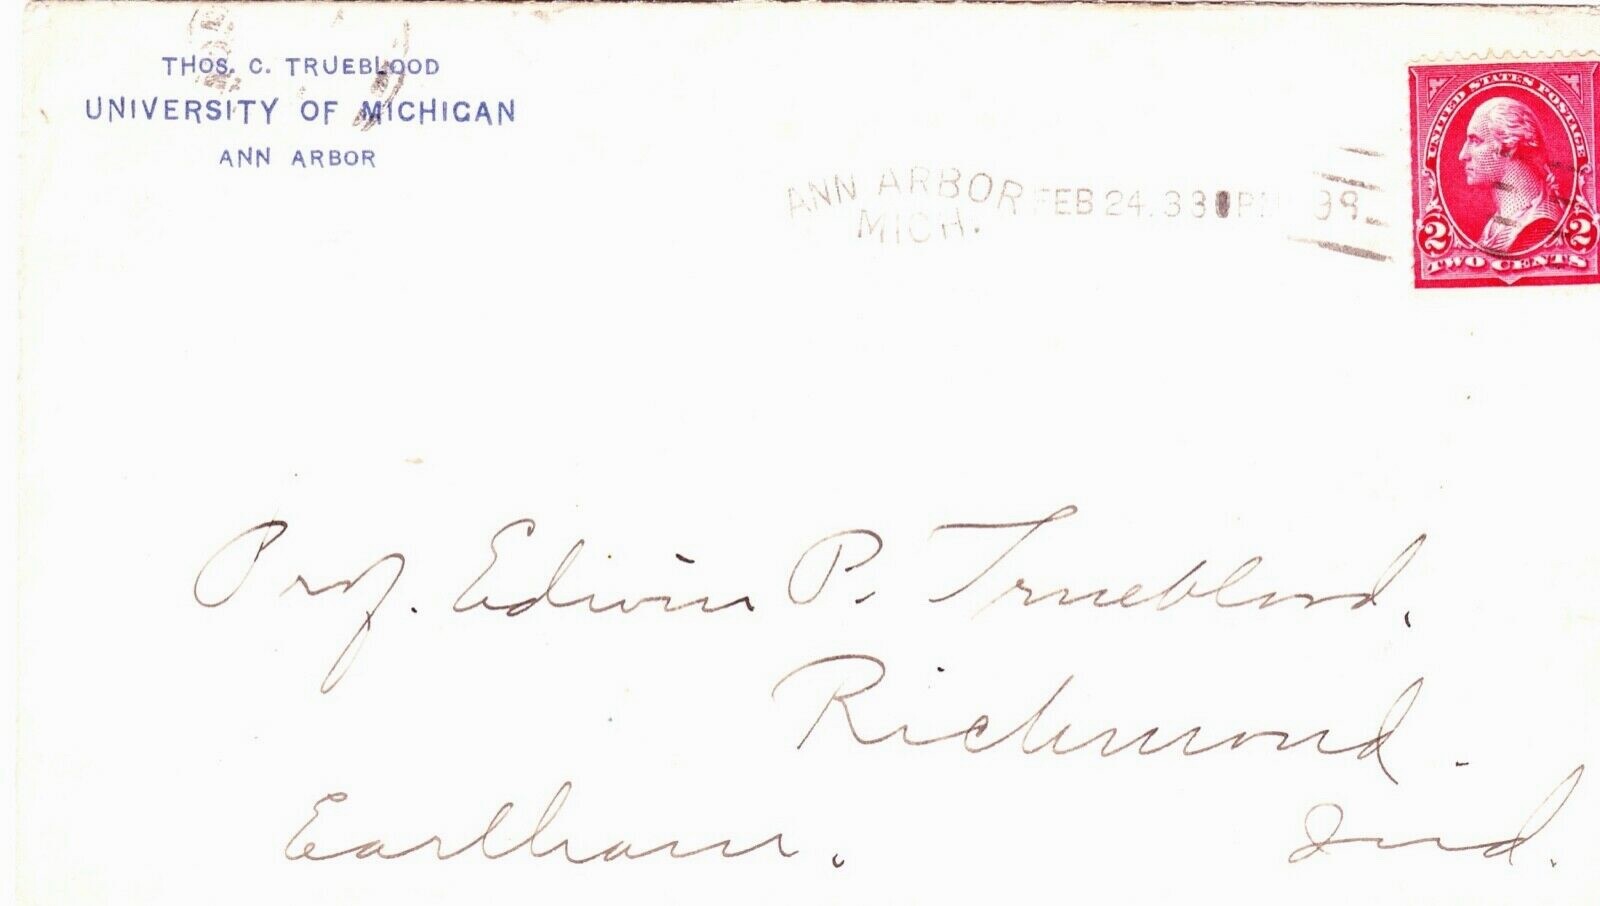 THOS. C. TRUEBLOOD
UNIVERSITY OF MICHIGAN
ANN ARBOR
ANN ARBOR FEB 24. 3 30 P
MICH.
UNITED STATES POSTAGE
2 2
TWO CENTS
Prof. Edwin P. Trueblood.
Richmond.
Earlham. Ind.